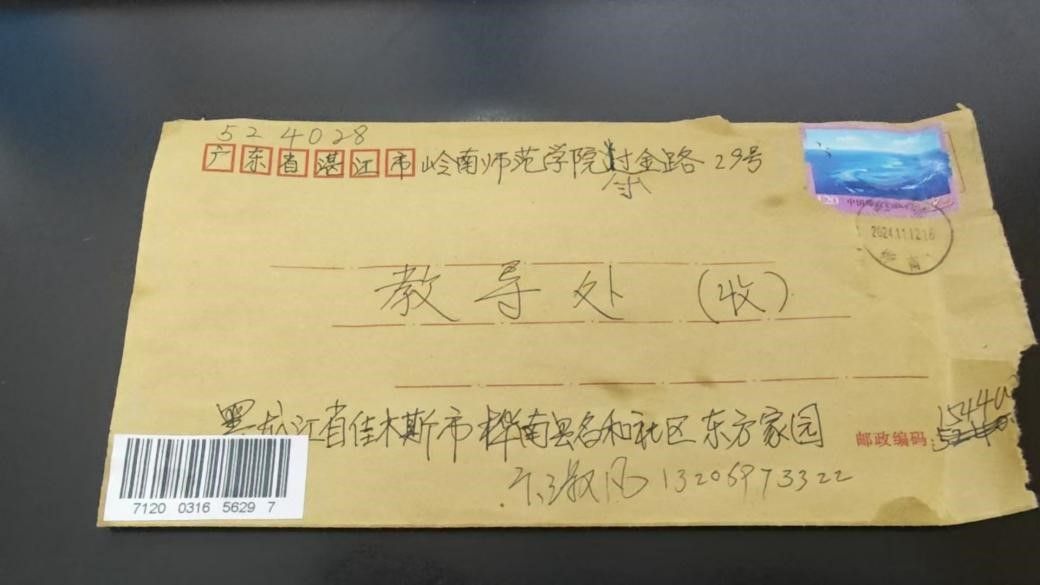 524028
广东省湛江市岭南师范学院寸金路29号
120 中国邮政
2024.11.12.16
桦南
教导处(收)
黑龙江省佳木斯市桦南县名和社区东方家园
邮政编码:15440
13206973322
7120 0316 5629 7